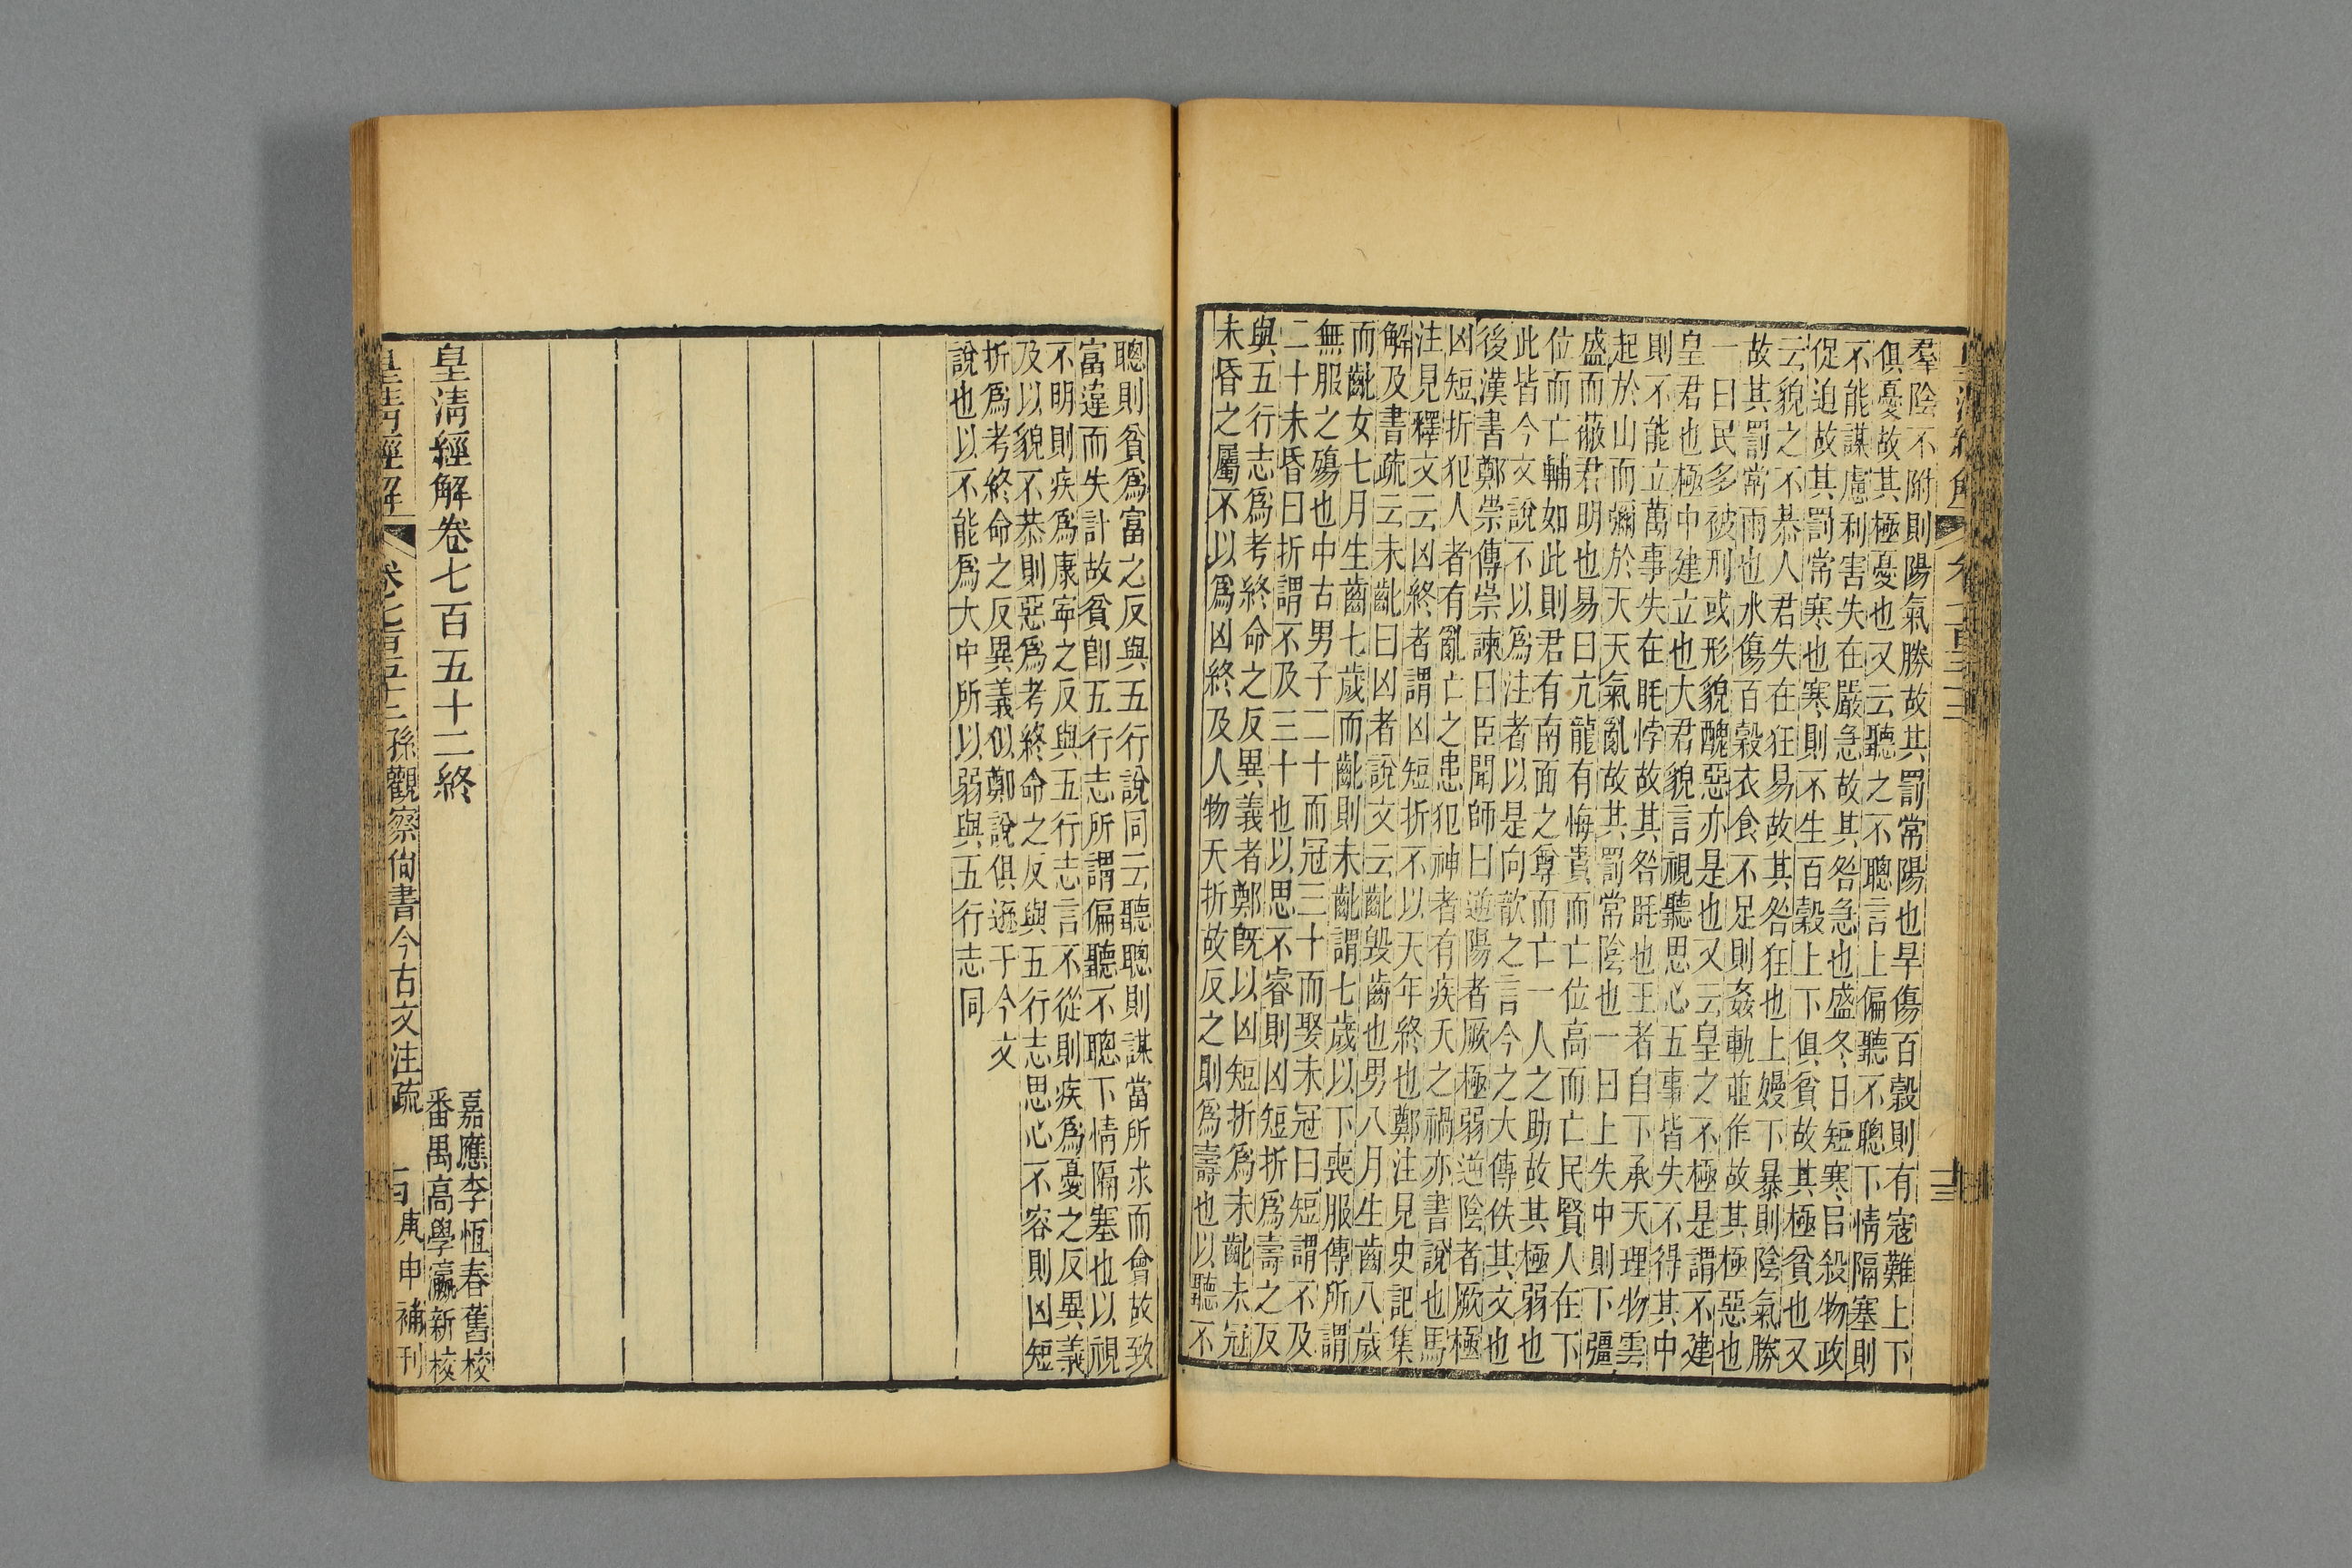 羣陰不附則陽氣勝故其罰常陽也旱傷百穀則有寇難上下
俱憂故其極憂也又云聽之不聰言上偏聽不聰下情隔塞則
不能謀慮利害失在嚴急故其咎急也盛冬日短寒以殺物政
促迫故其罰常寒也寒則不生百穀上下俱貧故其極貧也又
云貌之不恭人君失在狂易故其咎狂也上嫚下暴則陰氣勝
故其罰常雨也水傷百穀衣食不足則姦軌並作故其極惡也
一曰民多被刑或形貌醜惡亦是也又云皇之不極是謂不建
皇君也極中建立也大君貌言視聽思心五事皆失不得其中
則不能立萬事失在眊悖故其咎眊也王者自下承天理物雲
起於山而彌於天天氣亂故其罰常陰也一曰上失中則下彊
盛而蔽君明也易曰亢龍有悔貴而亡位高而亡民賢人在下
位而亡輔如此則君有南面之尊而亡一人之助故其極弱也
此皆今文說不以爲注者以是向歆之言今之大傳佚其文也
後漢書鄭崇傳崇諫曰臣聞師曰逆陽者厥極弱逆陰者厥極
凶短折犯人者有亂亡之患犯神者有疾夭之禍亦書說也馬
注見釋文云凶終者謂凶短折不以天年終也鄭注見史記集
解及書疏云未齔曰凶者說文云齔毀齒也男八月生齒八歲
而齔女七月生齒七歲而齔則未齔謂七歲以下喪服傳所謂
無服之殤也中古男子二十而冠三十而娶未冠曰短謂不及
二十未昏曰折謂不及三十也以思不睿則凶短折爲壽之反
與五行志爲考終命之反異義者鄭旣以凶短折爲未齔未冠
未昏之屬不以爲凶終及人物夭折故反之則爲壽也以聽不
聰則貧爲富之反與五行說同云聽聰則謀當所求而會故致
富違而失計故貧卽五行志所謂偏聽不聰下情隔塞也以視
不明則疾爲康寧之反與五行志言不從則疾爲憂之反異義
及以貌不恭則惡爲考終命之反與五行志思心不容則凶短
折爲考終命之反異義似鄭說俱遜于今文
說也以不能爲大中所以弱與五行志同
皇清經解卷七百五十二終
嘉應李恆春舊校
番禺高學瀛新校
皇清經解
卷七百五十二孫觀察尙書今古文注疏
庚申補刊